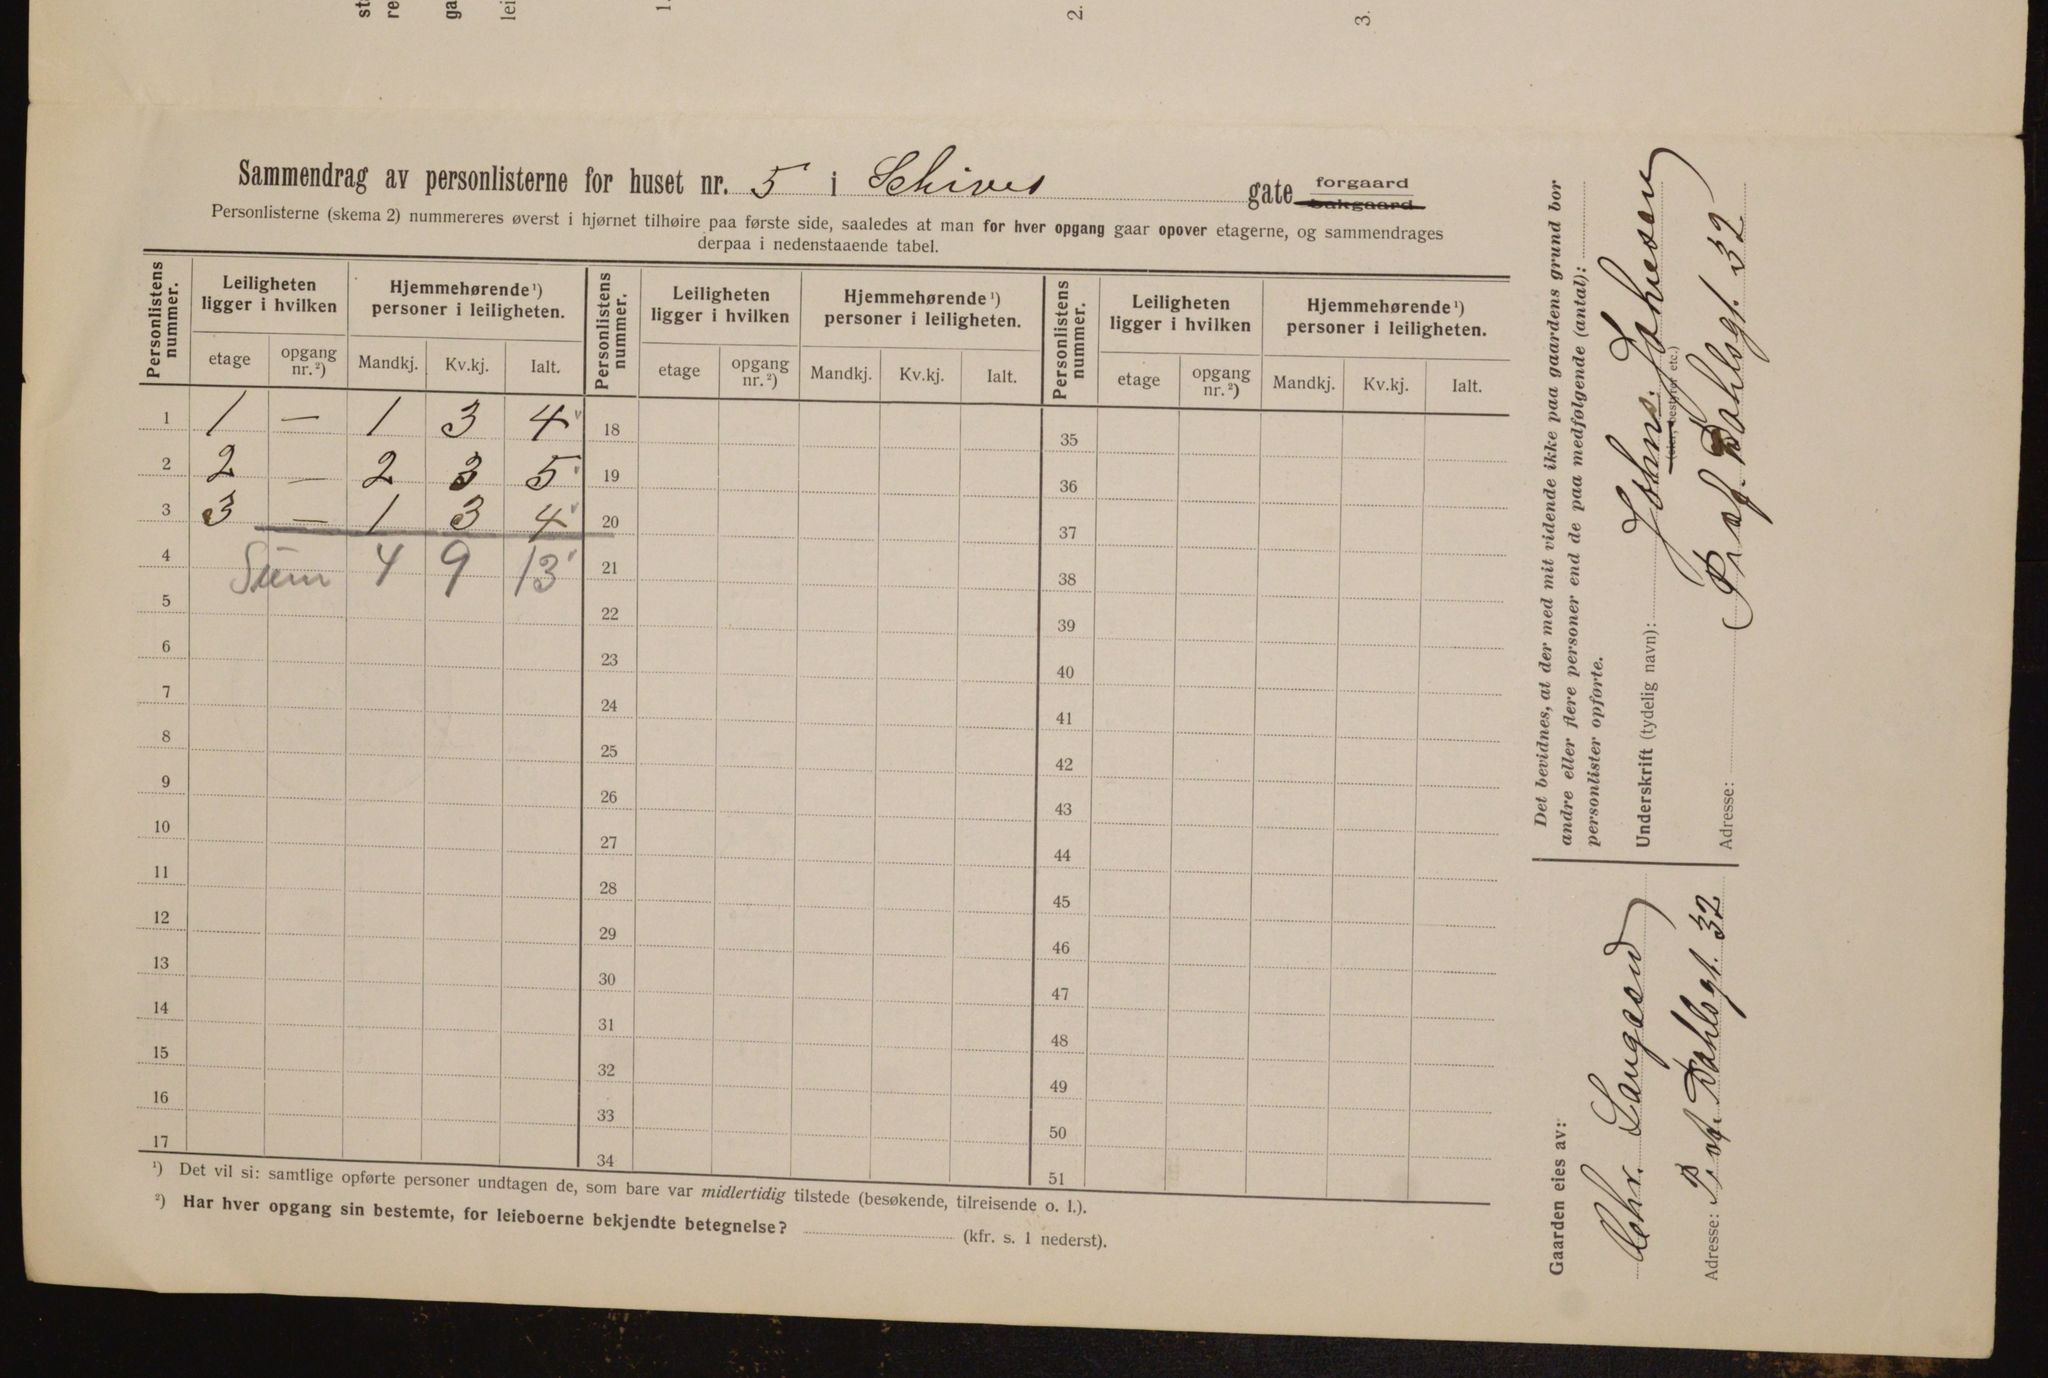 1.
2.
3.
Sammendrag av personlisterne for huset nr. 5 i Schives gate forgaard bakgaard
Personlisterne (skema 2) nummereres øverst i hjørnet tilhøire paa første side, saaledes at man for hver opgang gaar opover etagerne, og sammendrages
derpaa i nedenstaaende tabel.
Personlistens nummer. Leiligheten ligger i hvilken Hjemmehørende ¹) personer i leiligheten. Personlistens nummer. Leiligheten ligger i hvilken Hjemmehørende ¹) personer i leiligheten. Personlistens nummer. Leiligheten ligger i hvilken Hjemmehørende ¹) personer i leiligheten.
etage opgang nr. ²) Mandkj. Kv.kj. Ialt. etage opgang nr. ²) Mandkj. Kv.kj. Ialt. etage opgang nr. ²) Mandkj. Kv.kj. Ialt.
1 1 — 1 3 4 v 18 35
2 2 — 2 3 5 v 19 36
3 3 — 1 3 4 v 20 37
4 Sum 4 9 13 v 21 38
5 22 39
6 23 40
7 24 41
8 25 42
9 26 43
10 27 44
11 28 45
12 29 46
13 30 47
14 31 48
15 32 49
16 33 50
17 34 51
¹) Det vil si: samtlige opførte personer undtagen de, som bare var midlertidig tilstede (besøkende, tilreisende o. l.).
²) Har hver opgang sin bestemte, for leieboerne bekjendte betegnelse? (kfr. s. 1 nederst).
Det bevidnes, at der med mit vidende ikke paa gaardens grund bor
andre eller flere personer end de paa medfølgende (antal):
personlister opførte.
Underskrift (tydelig navn): Johns. Johnesen
(eier, bestyrer etc.)
Adresse: Prof. Dahlsgt. 32
Gaarden eies av:
Chr. Langaard
Adresse: Prof. Dahlsgt. 32